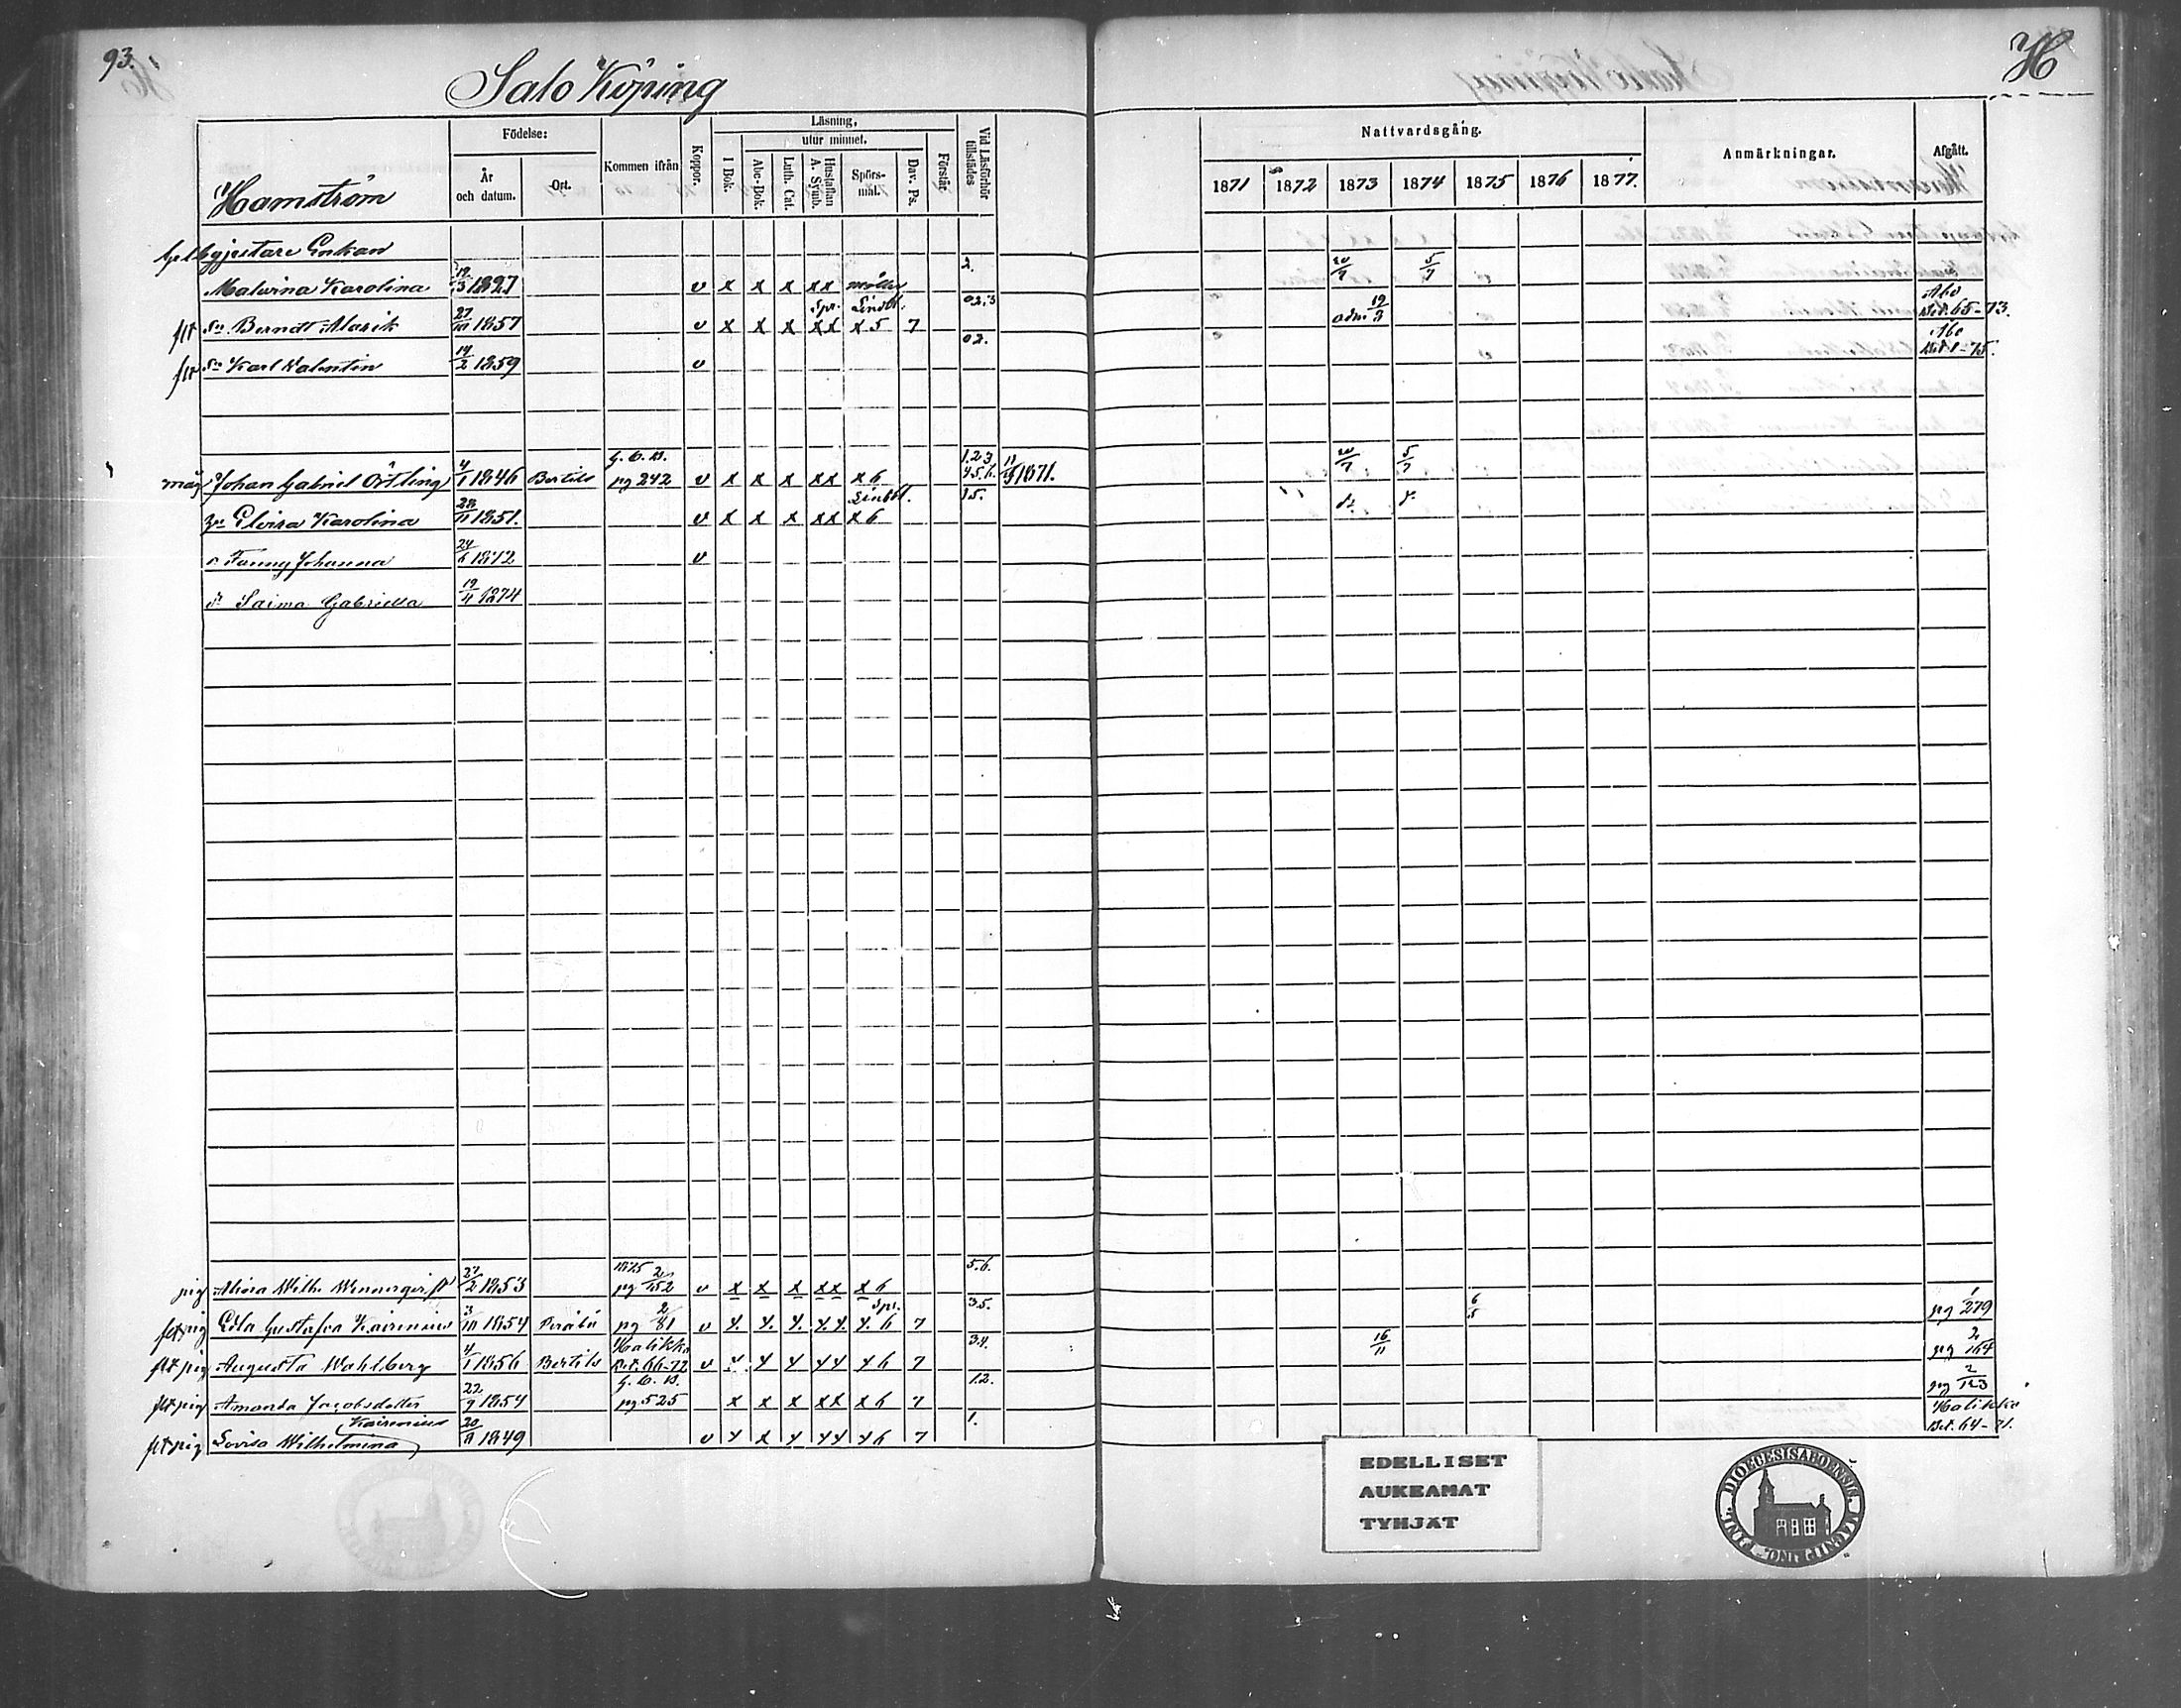 93.
Salo Köping
H
Hamström
Födelse:
År och datum.
Ort.
Kommen ifrån
Koppor.
Läsning,
I Bok.
utur minnet.
Abc-Bok.
Luth. Cat.
Hustaflan A. Symb.
Spörs-mål.
Dav. Ps.
Förstår
Vid Läsförhör tillstädes
Nattvardsgång.
1871 1872 1873 1874 1875 1876 1877.
Anmärkningar.
Afgått.
Enkan
Malvina Karolina 19/3 1827 v x x x xx Möller 2. 20/7 5/7
flt Sn Berndt Alarik 27/10 1857 v x x x Spr. xx Lindbl. x 5 7 02.3 adm. 19/3 Åbo Bet. 65-73.
flt Sn Karl Valentin 14/2 1859 v 02. Åbo Bet. 1-75.
måg Johan Gabriel Örtling 4/1 1846 Bertils g. C. B. pg 242 v x x x xx x 6 1.2.3 4.5.6. 1871. 20/7 5/7
Elvira Karolina 1851. v x x x xx Lindbl. x 6 35.
Fanny Johanna 24/6 1872 v
Saima Gabriella 19/4 1874
pig Wilh. Wennerqvist 27/2 1853 1875 pg 2/152 v x x x xx x 6 5.6.
flt pig Edla Gustafva Kairenius 3/10 1854 pg 2/81 v x. x. x. x.x. Spr. x. 6 7 35. 6/5 pg 1/279
flt pig Augusta Wahlberg 4/1 1856 Bertils Halikko Bet. 66-72 v x x x xx x 6 7 34. 16/11 pg 2/164
flt pig Amanda Jacobsdotter 22/9 1854 g. C. B. pg 525 x x x xx x 6 7 12. pg 2/123
flt pig Lovisa Wilhelmina Kairenius 1849 v x x x xx x 6 7 1. Halikko Bet. 64-71.
EDELLISET
AUKEAMAT
TYHJÄT